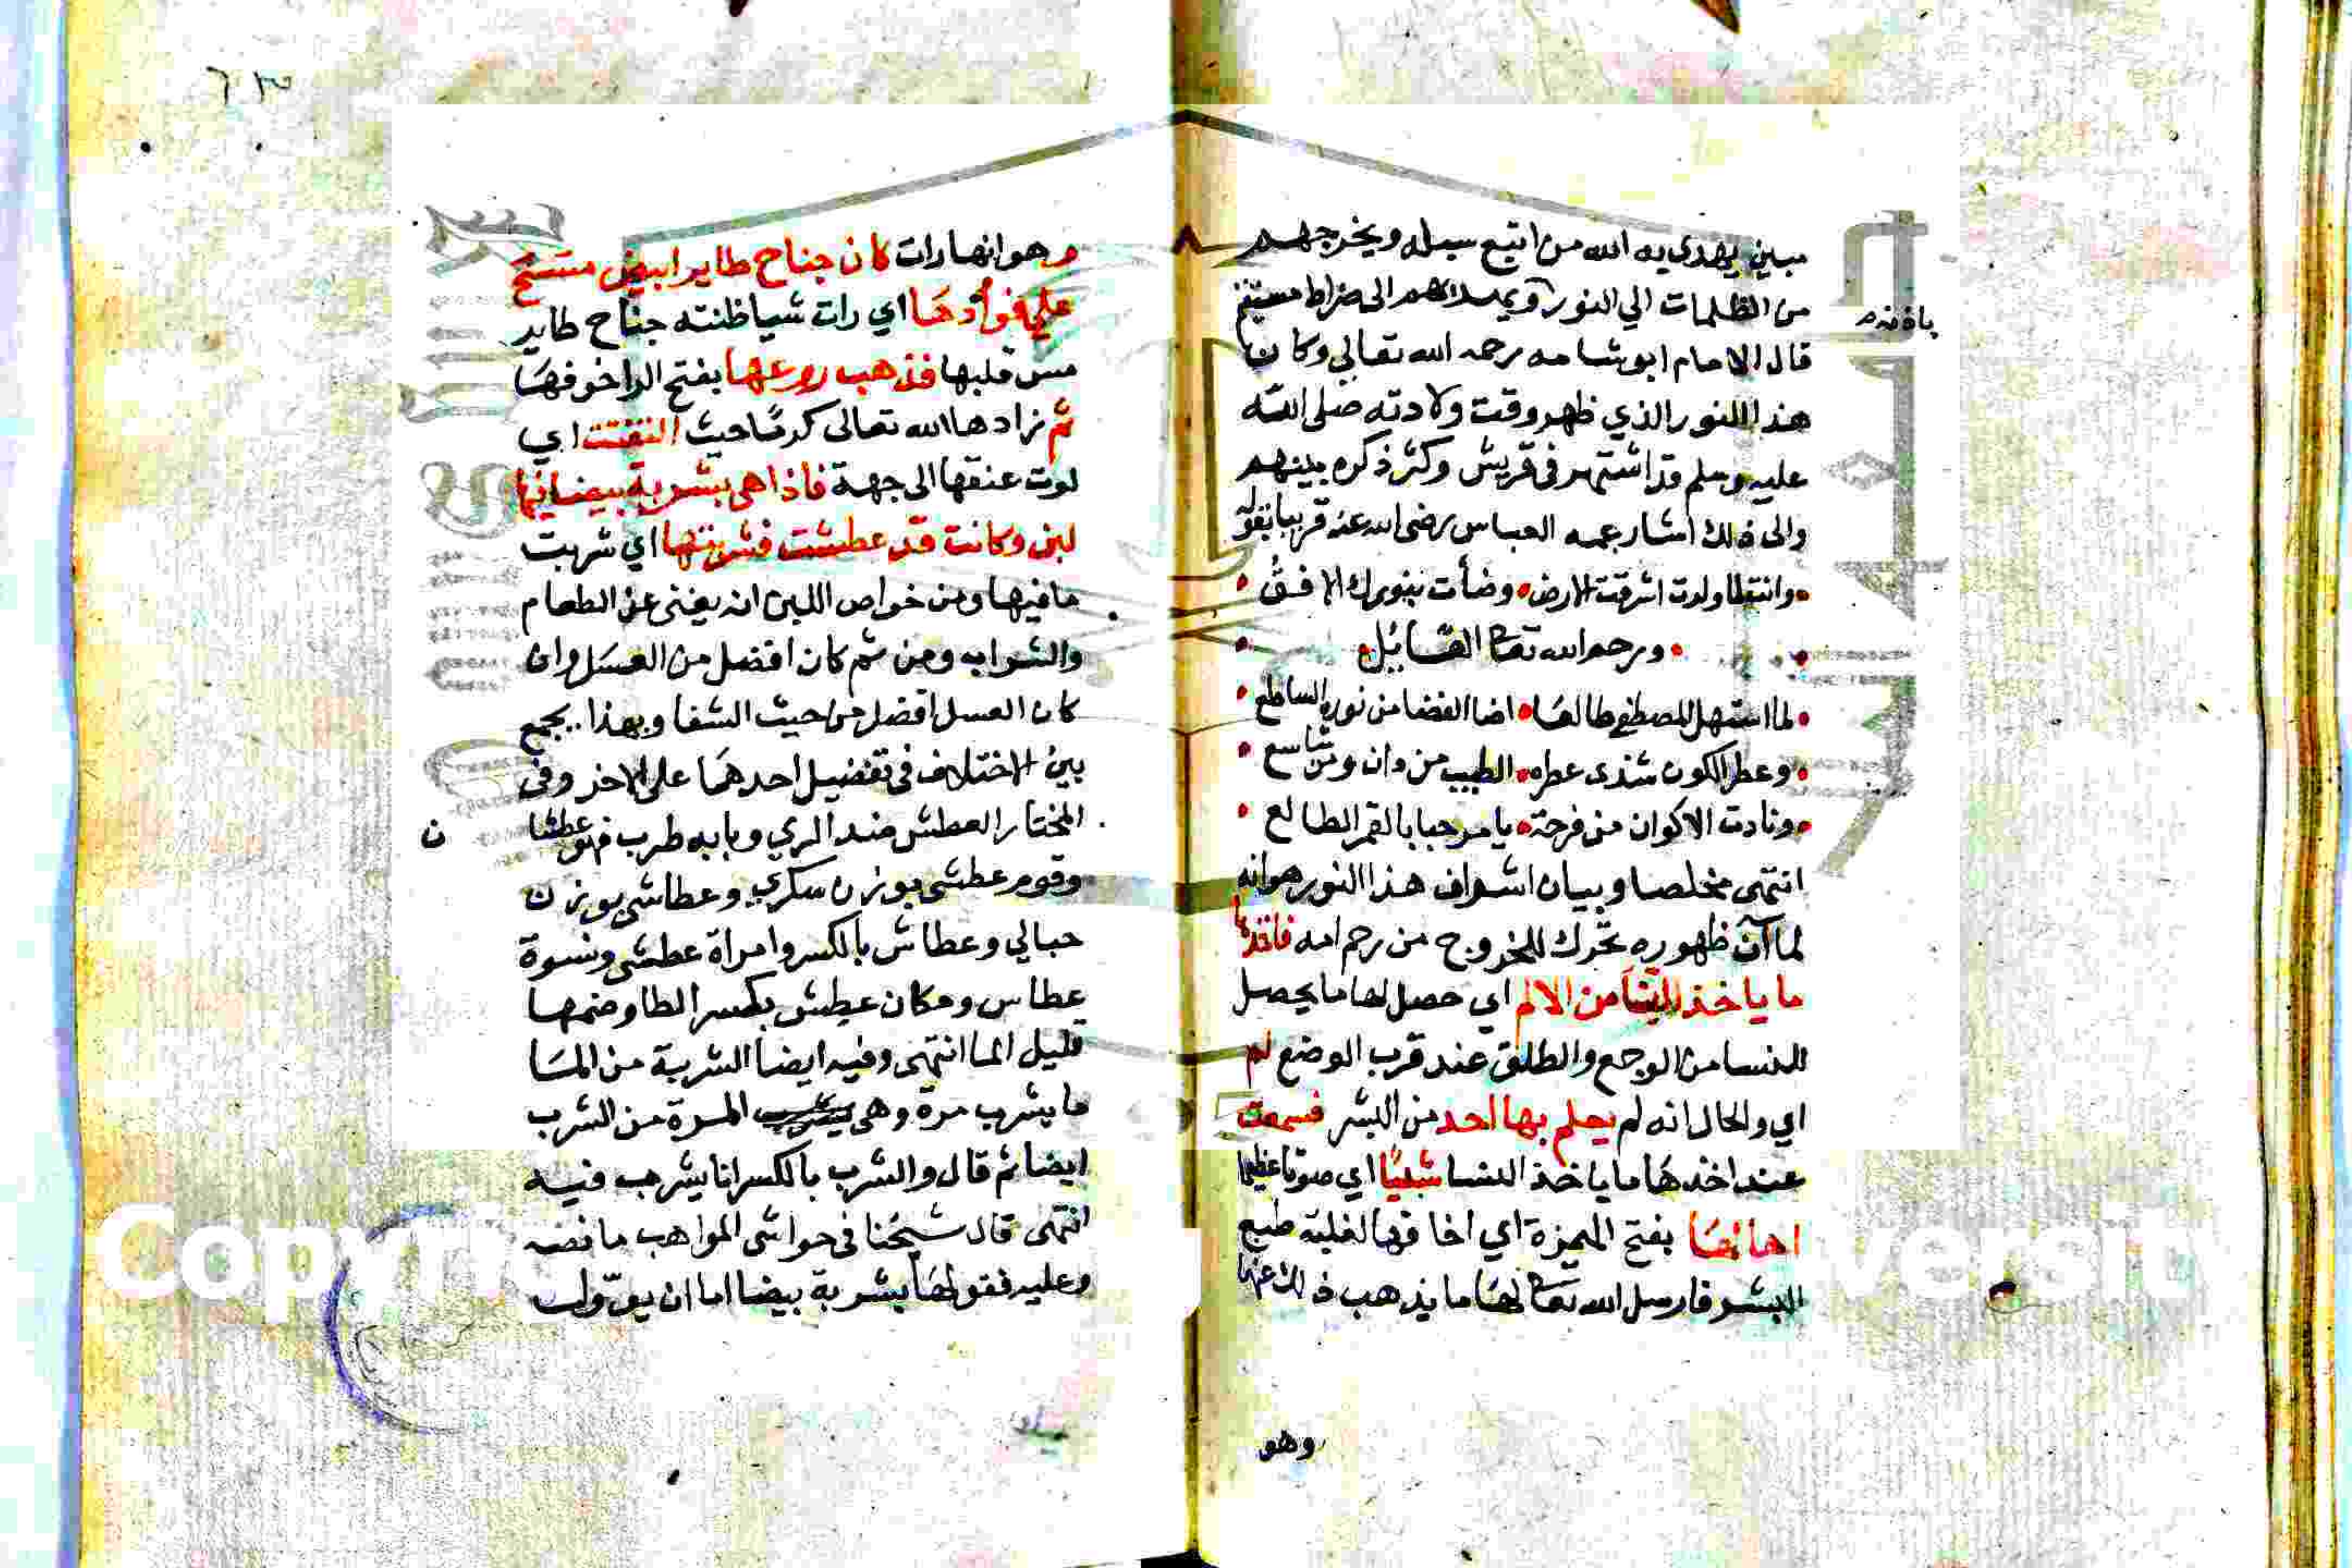 مبين يهدي به الله من اتبع سبله ويخرجهم
من الظلمات الي النور ويهديهم الى صراط مستقيم
باذنه
قال الامام ابو شامه رحمه الله تعالي وكان
هذا النور الذي ظهر وقت ولادته صلى الله
عليه وسلم قد اشتهر في قريش وكثر ذكره بينهم
والى ذلك اشار عمه العباس رضى الله عنه قريبا بقوله
وانت لما ولدت اشرقت الارض وضأت بنورك الافق
ورحم الله تعا القائل
لما استهل المصطفى طالعا اضا الفضا من نوره الساطع
وعطر الكون شذى عطره الطيب من دان ومن شاسع
ونادت الاكوان من فرحة يا مرحبا بالقمر الطالع
انتهى مخلصا وبيان اشراف هذا النور هو انه
لما آن ظهوره تحرك للخروج من رحم امه فاخذها
ما ياخذ النسا من الالم اي حصل لها ما يحصل
للنسا من الوجع والطلق عند قرب الوضع لم
اي والحال انه لم يعلم بها احد من البشر فسمعت
عند اخذها ما ياخذ النسا شيئا اي صوتا عظيما
اهالها بفتح الهمزة اي اخافها لغلبة طبع
البشر فارسل الله تعا لها ما يذهب ذلك عنها
وهو
٦٣
وهو انها رات كان جناح طاير ابيض مسح
على فوادها اي رات شيا ظنته جناح طاير
مس قلبها فذهب روعها بفتح الرا خوفها
ثم زادها الله تعالى كرما حيث التفتت اي
لوت عنقها الى جهة فاذا هي بشربة بيضا فيها
لبن وكانت قد عطشت فشربتها اي شربت
ما فيها ومن خواص اللبن انه يغنى عن الطعام
والشراب ومن ثم كان افضل من العسل وان
كان العسل افضل من حيث الشفا وبهذا يجمع
بين الاختلاف في تفضيل احدهما على الاخر وفي
المختار العطش ضد الري وبابه طرب فهو عطشا
ن
وقوم عطشى بوزن سكري وعطاشى بوزن
حبالي وعطاش بالكسر وامراة عطشى ونسوة
عطاس ومكان عطش بكسر الطا وضمها
قليل الما انتهى وفيه ايضا الشربة من الما
ما يشرب مرة وهى المرة من الشرب
ايضا ثم قال والشرب بالكسر انا يشرب فيه
انتهى قال شيخنا في حواشى المواهب ما نصه
وعليه فقولها بشربة بيضا اما ان يؤول